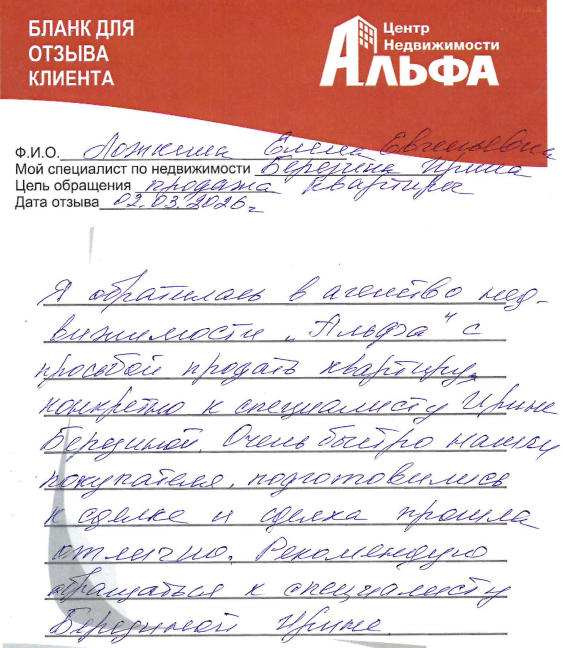 БЛАНК ДЛЯ
ОТЗЫВА
КЛИЕНТА
Центр
Недвижимости
АЛЬФА
Ф.И.О. Ложкина Елена Евгеньевна
Мой специалист по недвижимости Бередина Ирина
Цель обращения продажа квартиры
Дата отзыва 02.03.2026г
Я обратилась в агенство нед-
вижимости „Альфа" с
просьбой продать квартиру,
конкретно к специалисту Ирине
Берединой. Очень быстро нашли
покупателя, подготовились
к сделке и сделка прошла
отлично. Рекомендую
обращаться к специалисту
Берединой Ирине.